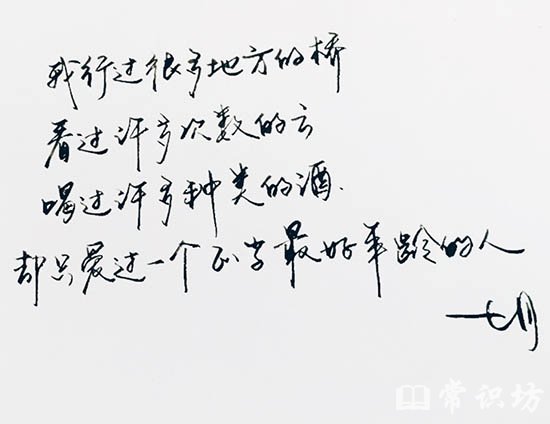 我行过很多地方的桥
看过许多次数的云
喝过许多种类的酒.
却只爱过一个正当最好年龄的人
七月
常识坊